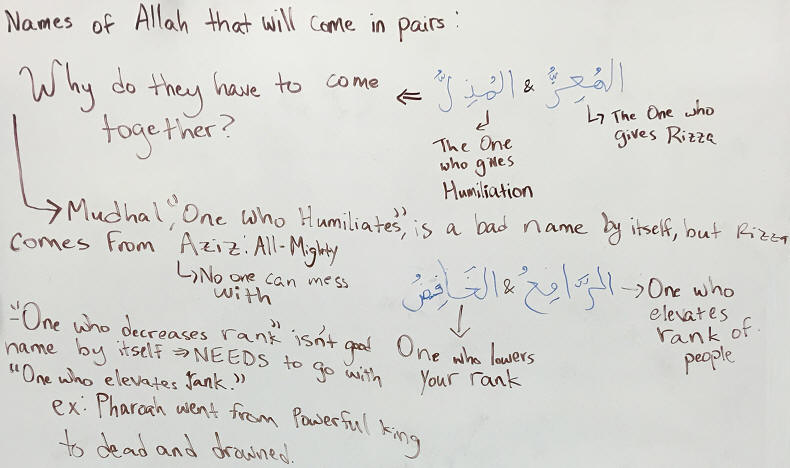 Names of Allah that will come in pairs:
Why do they have to come
together?
⇐ المُذِلُّ & المُعِزُّ
↳ The One who
gives Rizza
The One
who gives
Humiliation
→ Mudhal, "One who Humiliates", is a bad name by itself, but Rizza
comes from Aziz: All-Mighty
↳ No one can mess
with
الرَّافِعُ & الخَافِضُ
→ One who
elevates
rank of
people
One who lowers
your rank
- "One who decreases rank" isn't good
name by itself ⇒ NEEDS to go with
"One who elevates rank."
ex: Pharoah went from Powerful king
to dead and drowned.